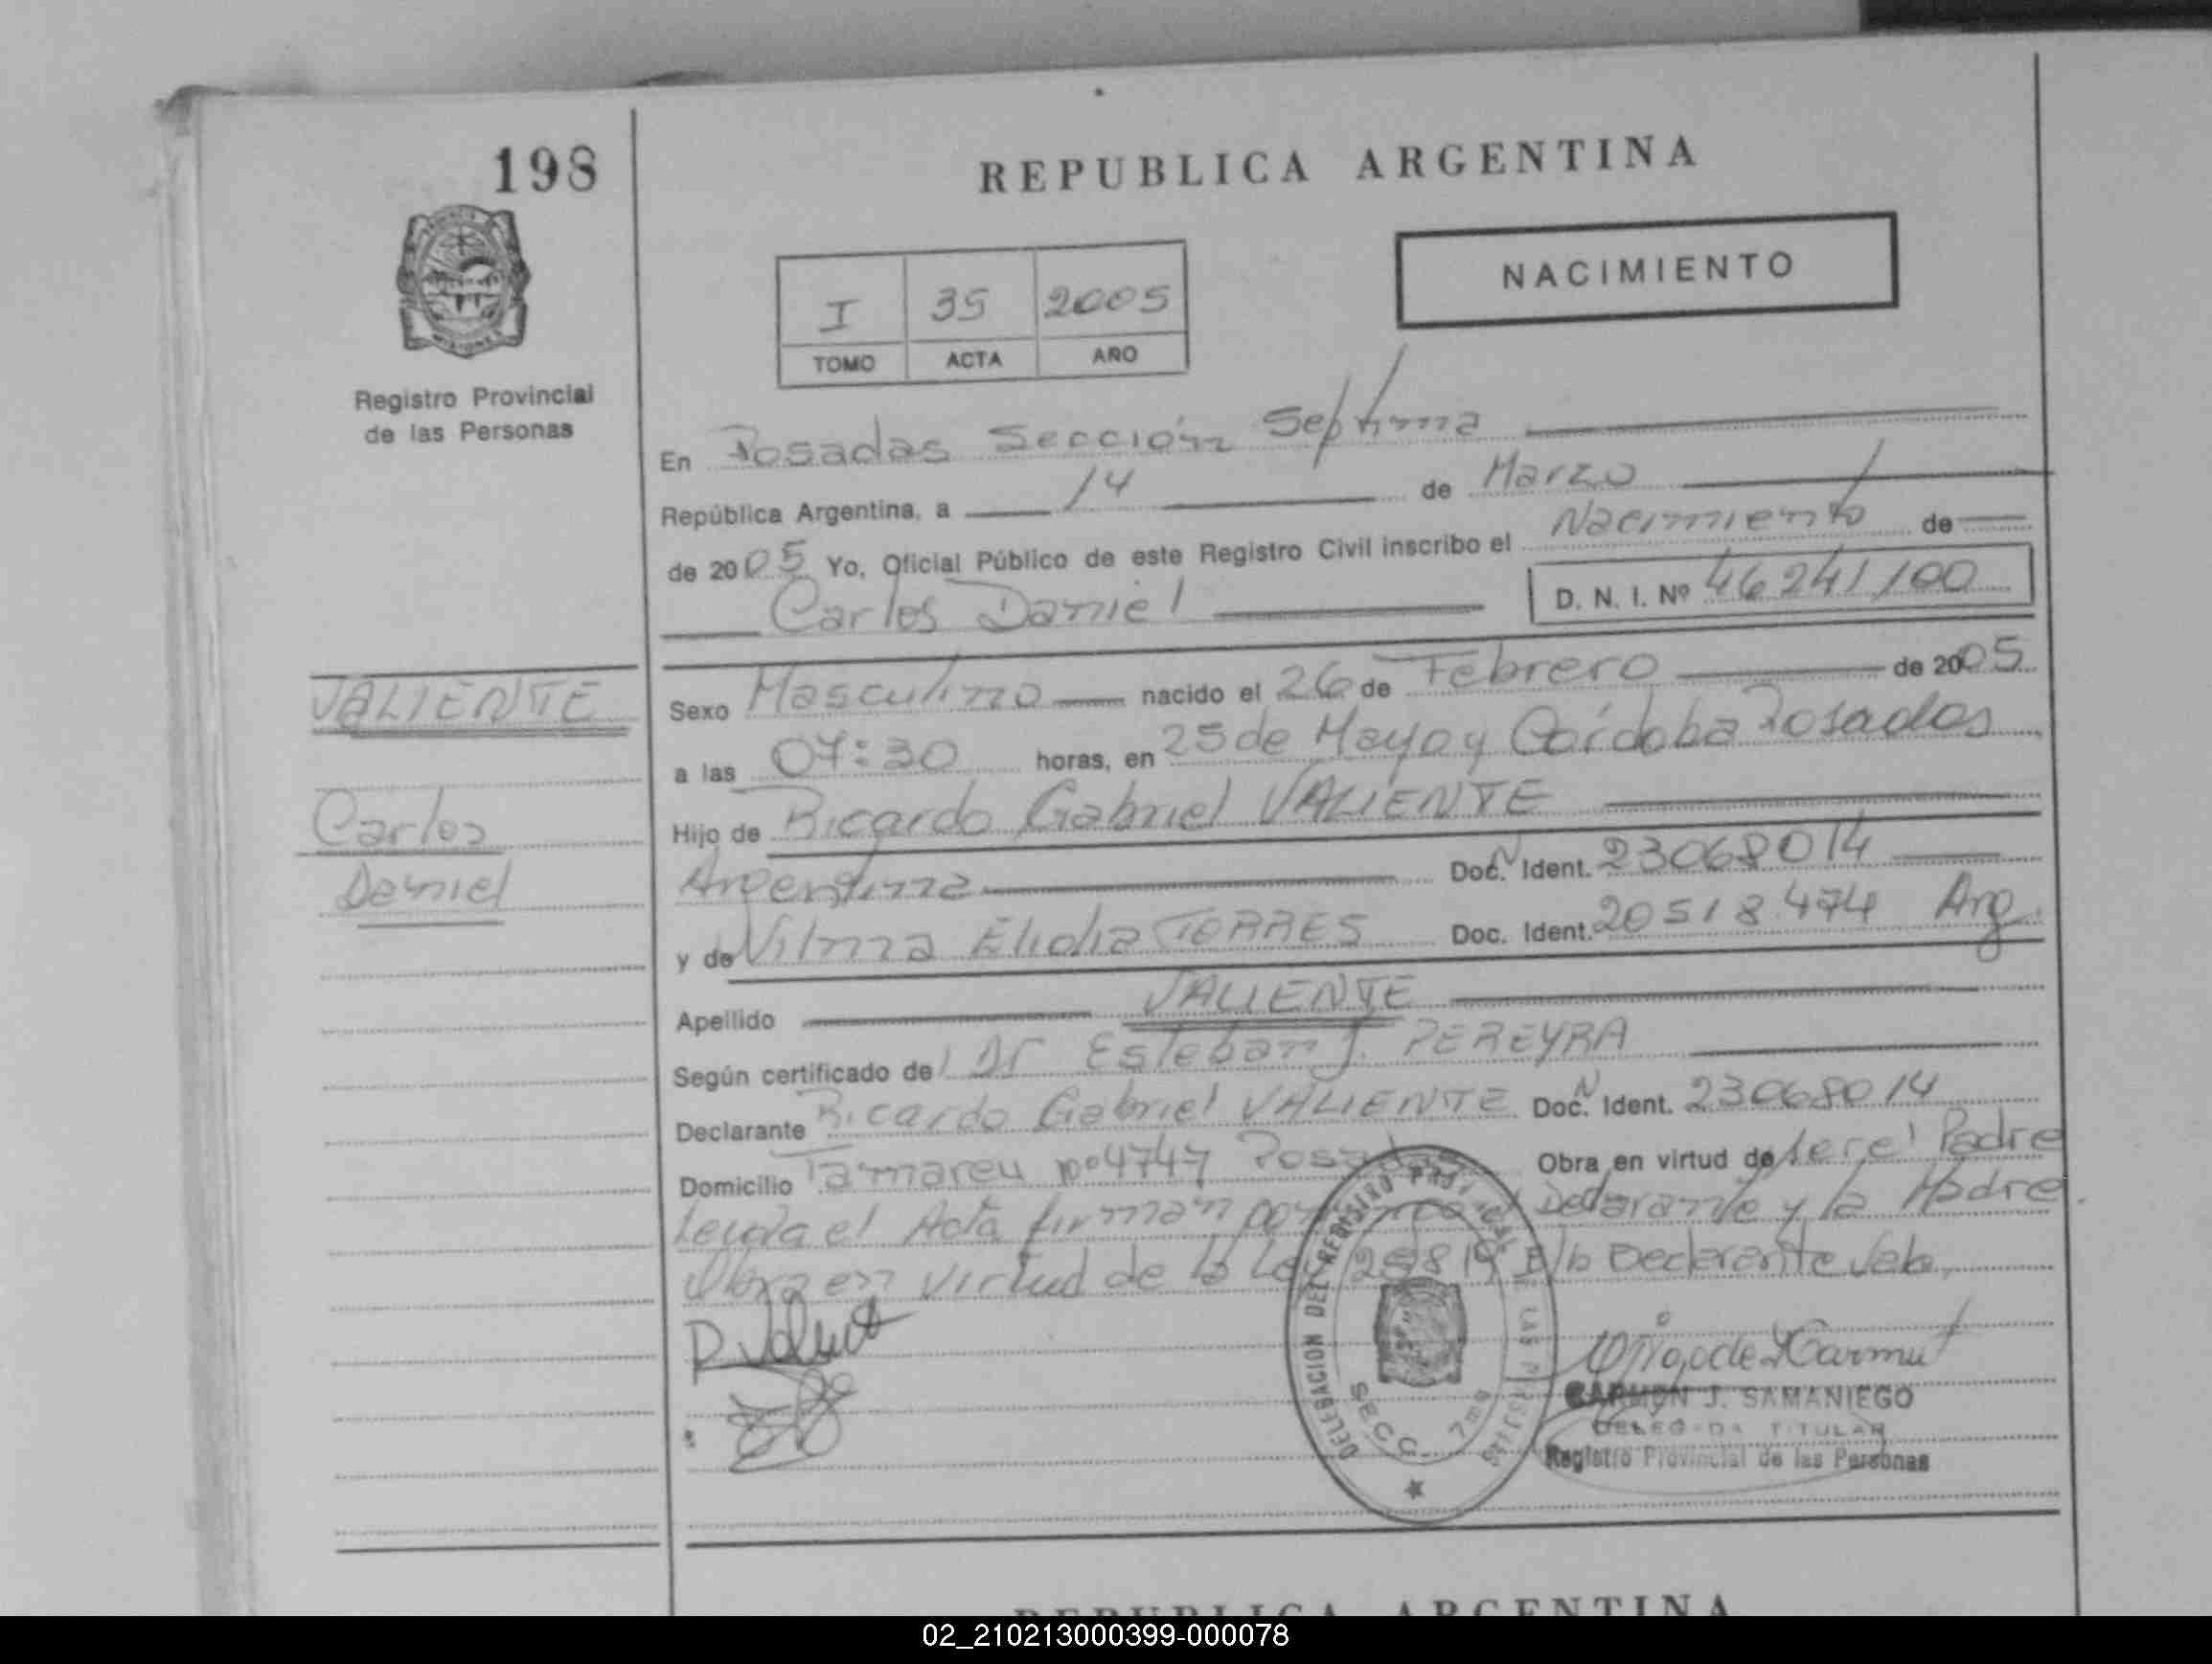 198
REPUBLICA ARGENTINA
NACIMIENTO
I 35 2005
TOMO ACTA AÑO
Registro Provincial
de las Personas
En Posadas Sección Septima
República Argentina, a 14 de Marzo
de 2005 Yo, Oficial Público de este Registro Civil inscribo el Nacimiento de
Carlos Daniel D. N. I. Nº 46241100
VALIENTE
Carlos
Daniel
Sexo Masculino nacido el 26 de Febrero de 2005
a las 07:30 horas, en 25 de Mayo y Córdoba Posadas
Hijo de Ricardo Gabriel VALIENTE
Argentina Doc. N Ident. 23068014
y de Vilma Elidia TORRES Doc. Ident. 20518474 Arg.
Apellido VALIENTE
Según certificado del Dr Esteban J. PEREYRA
Declarante Ricardo Gabriel VALIENTE Doc. N Ident. 23068014
Domicilio Tamareu nº 4747 Posadas Obra en virtud de ser el Padre
Leida el Acta firman Declarante y la Madre.
Obra en virtud de la Ley 25819 E/b Declarante Vale.
DELEGACION DEL REGISTRO PROVINCIAL DE LAS PERSONAS
SECC. 7ma
CARMEN J. SAMANIEGO
DELEGADA TITULAR
Registro Provincial de las Personas
REPUBLICA ARGENTINA
02_210213000399-000078